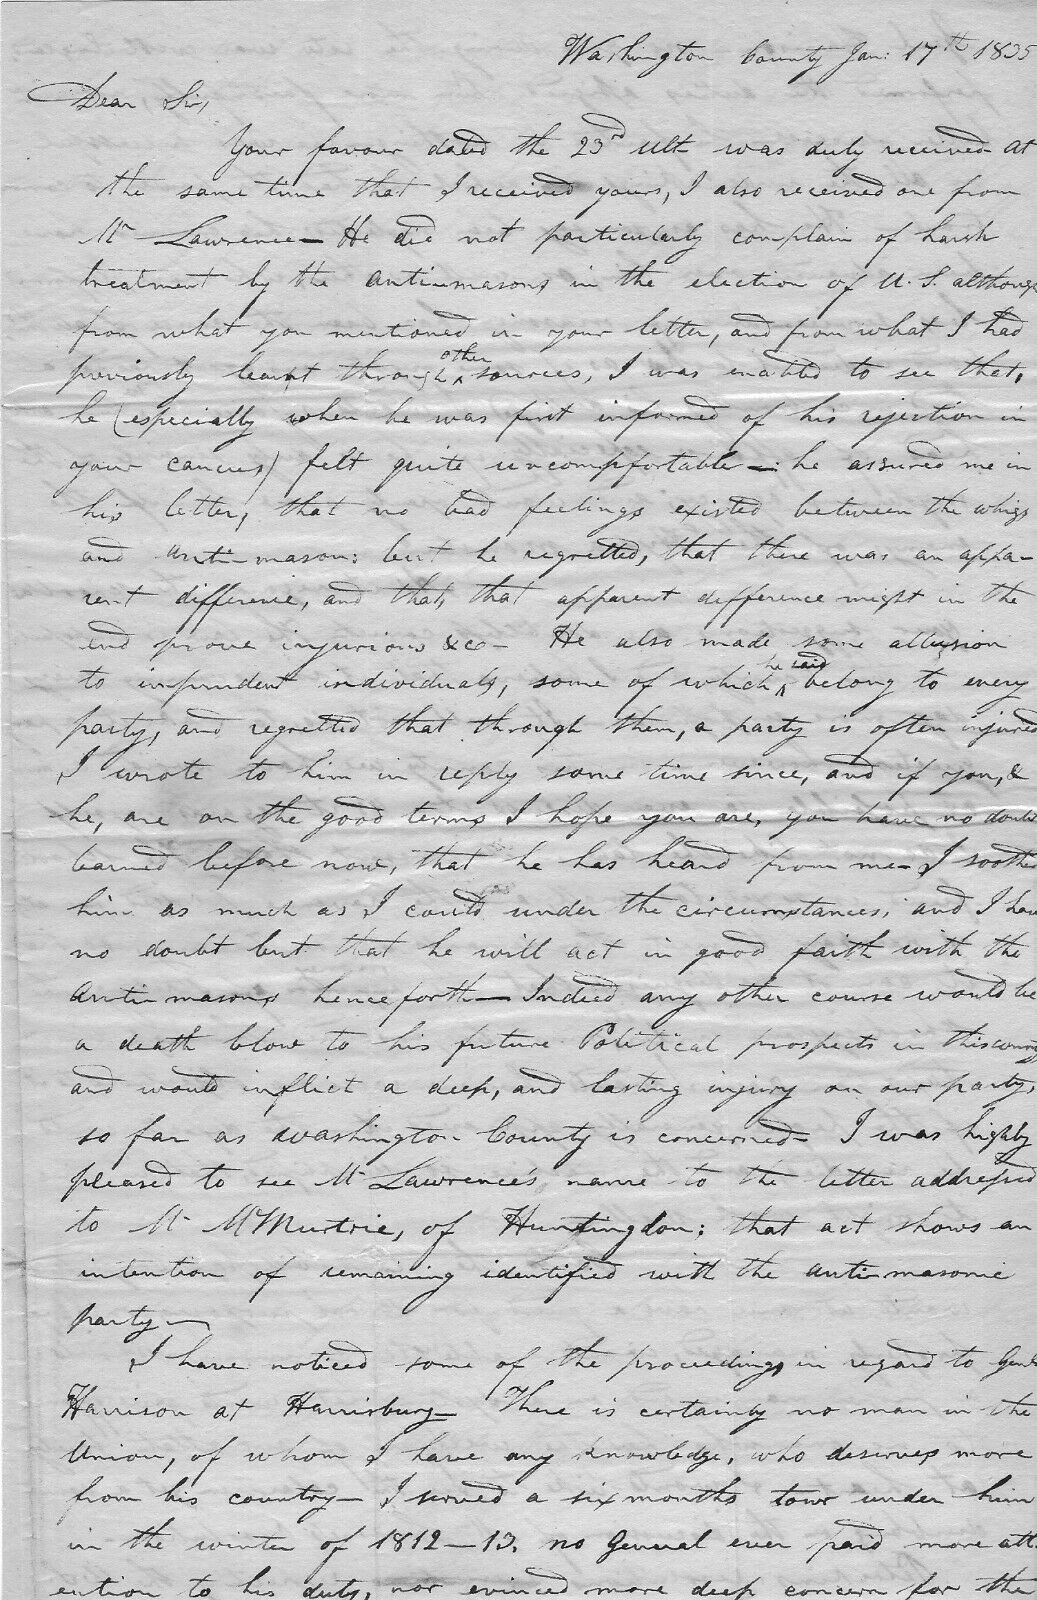 Washington County Jan: 17th 1835
Dear Sir,
Your favour dated the 23rd ult. was duly received at
the same time that I received yours, I also received one from
Mr Lawrence — He did not particularly complain of harsh
treatment by the antimasons in the election of U. S. although
from what you mentioned in your letter, and from what I had
previously learnt through other sources, I was enabled to see that,
he (especially when he was first informed of his rejection in
your caucus) felt quite uncomfortable —: he assured me in
his letter, that no bad feelings existed between the whigs
and anti-masons: but he regretted, that there was an appa-
rent difference, and that, that apparent difference might in the
end prove injurious &c — He also made some allusion
to imprudent individuals, some of which he said belong to every
party, and regretted that through them, a party is often injured
I wrote to him in reply some time since, and if you, &
he, are on the good terms I hope you are, you have no doubt
learned before now, that he has heard from me — I soothed
him as much as I could under the circumstances, and I have
no doubt but that he will act in good faith with the
anti-masons henceforth — Indeed any other course would be
a death blow to his future Political prospects in this county
and would inflict a deep, and lasting injury on our party,
so far as Washington County is concerned — I was highly
pleased to see Mr Lawrence's name to the letter addressed
to Mr McMurtrie, of Huntingdon; that act shows an
intention of remaining identified with the anti-masonic
party —
I have noticed some of the proceedings in regard to Genl
Harrison at Harrisburg — There is certainly no man in the
Union, of whom I have any knowledge, who deserves more
from his country — I served a six months tour under him
in the winter of 1812—13. no General ever paid more att-
ention to his duty, nor evinced more deep concern for the